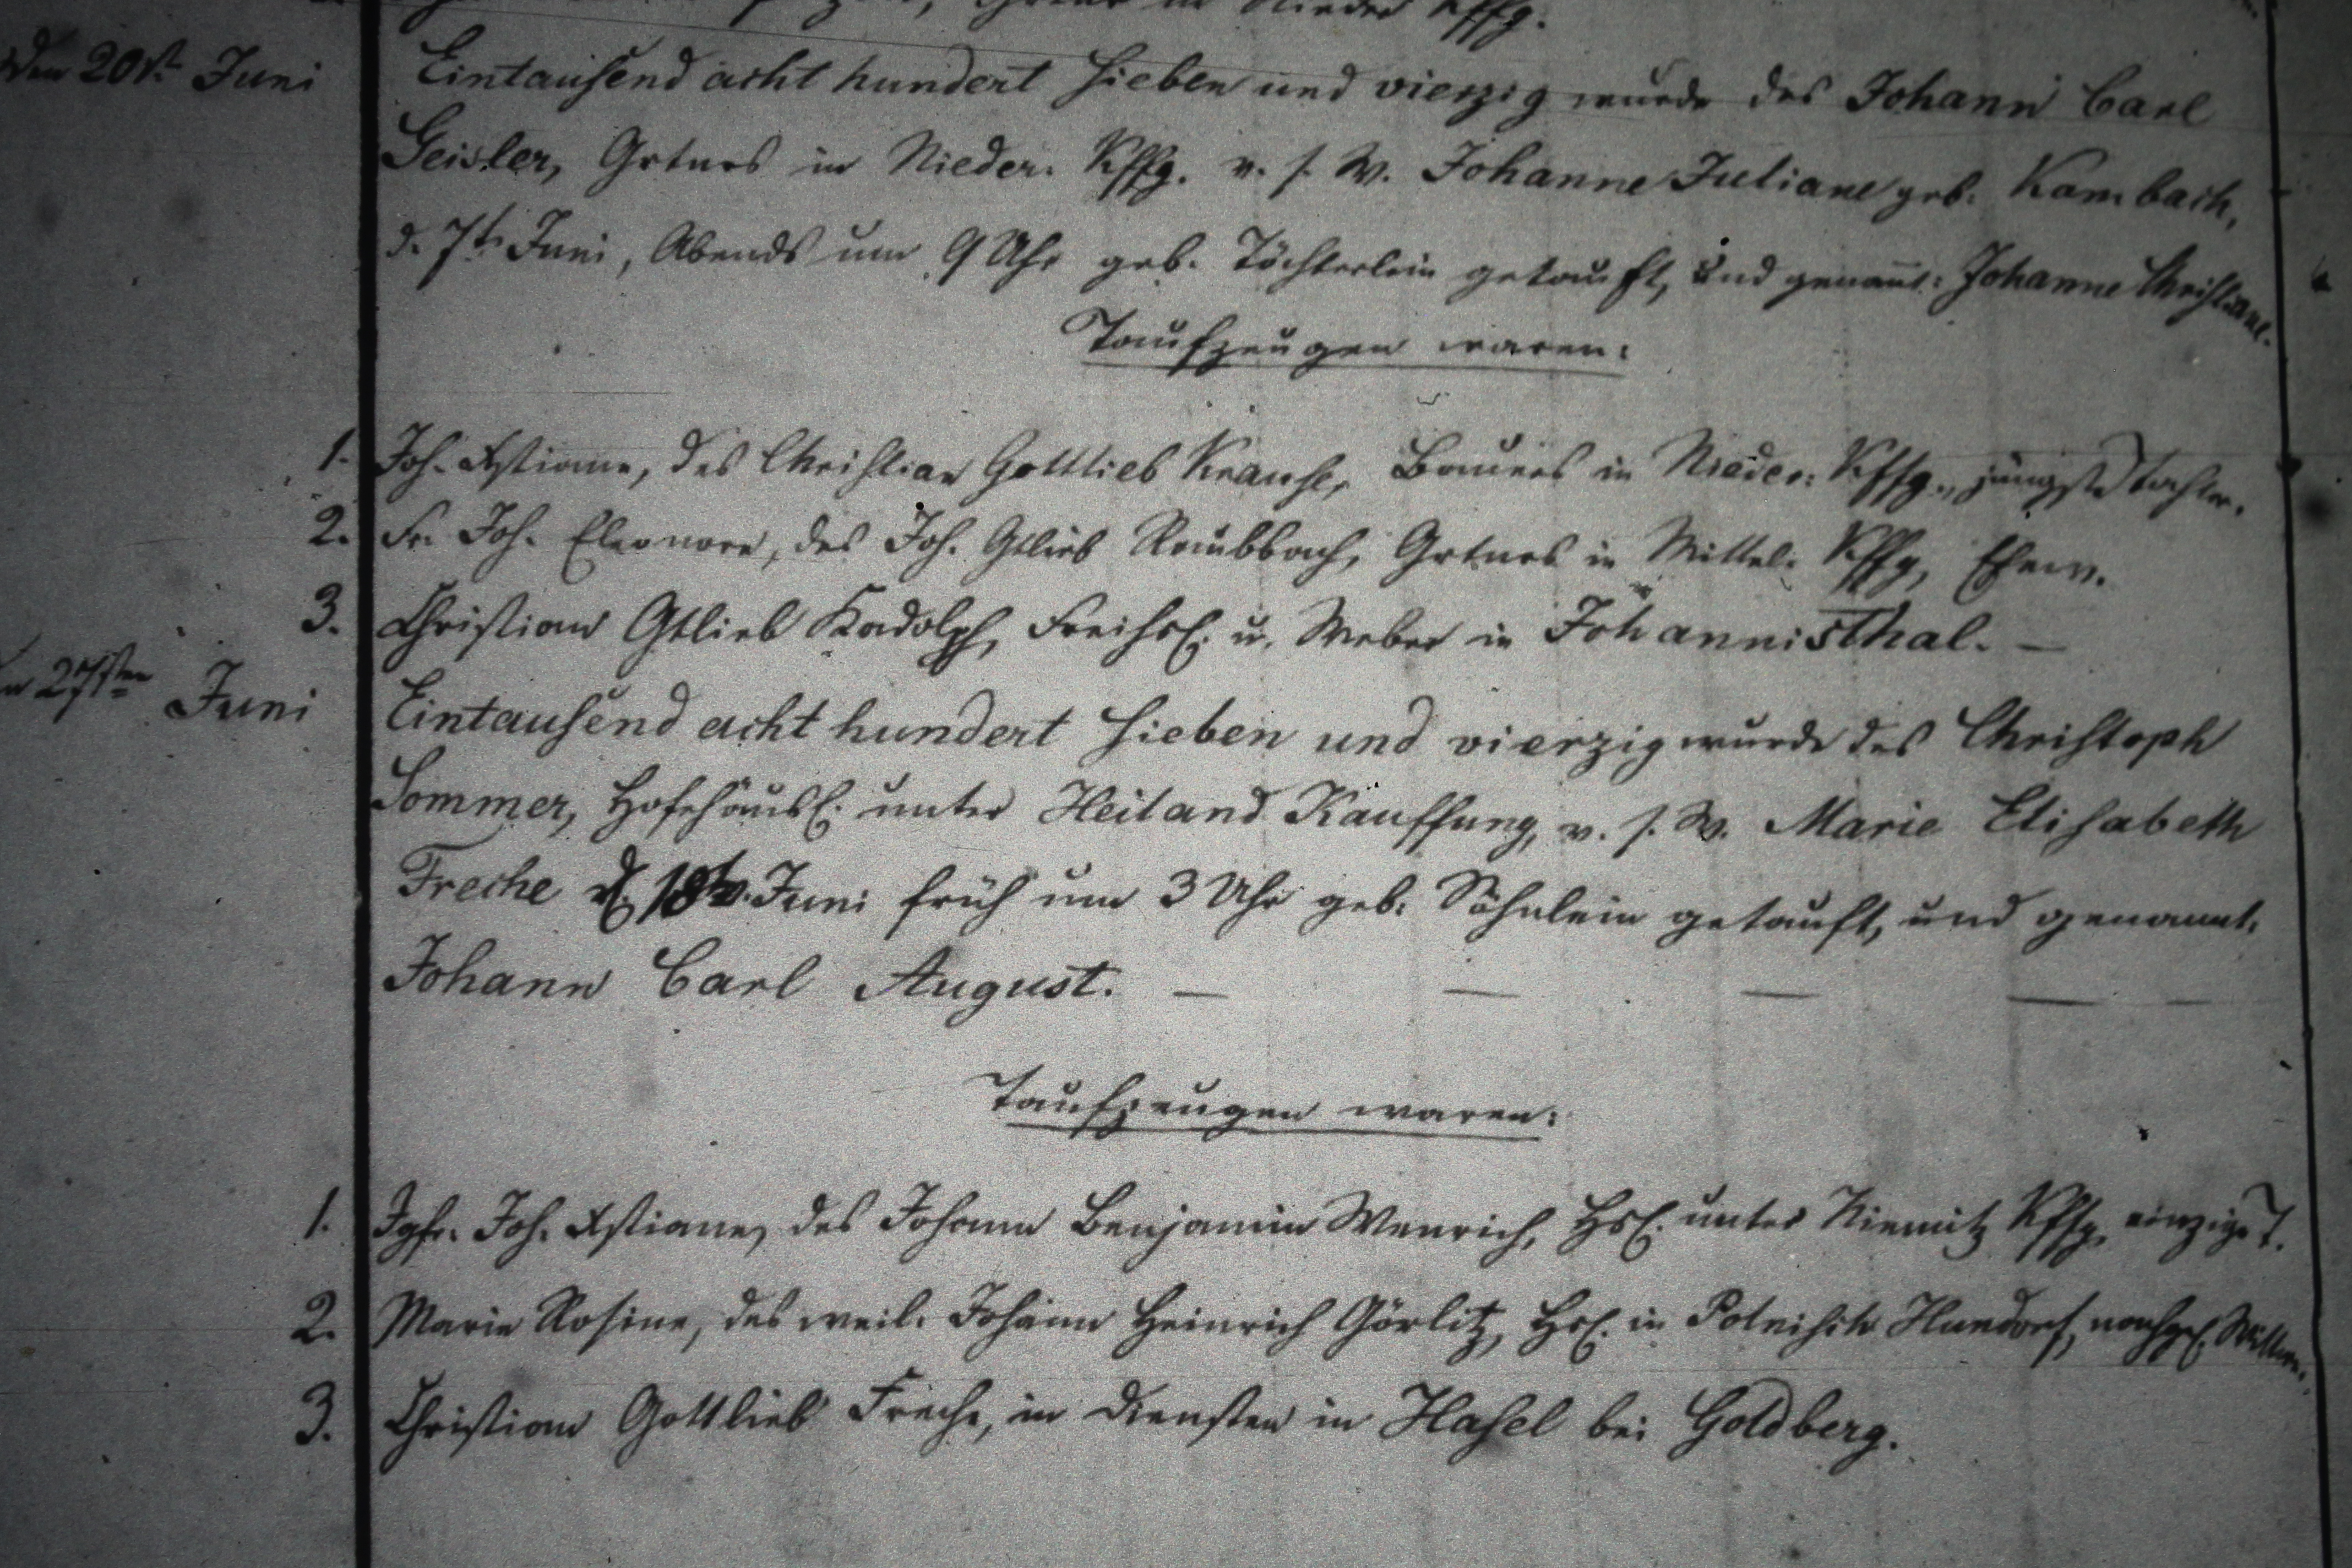 in Nieder Kffg.
den 20st. Juni Eintausend acht hundert sieben und vierzig wurde des Johann Carl
Geisler, Grtnrs in Nieder. Kffg. v. s. W. Johanne Juliane geb. Kambach,
d. 7t. Juni, Abends um 9 Uhr geb. Töchterlein getauft, und genannt: Johanne Christiane.
Taufzeugen waren:
1. Joh. Xstiane, des Christian Gottlieb Krause, Bauers in Nieder. Kffg., jüngste Tochter.
2. Fr. Joh. Eleonore, des Joh. Gtlieb Raubbach, Grtnrs in Mittel. Kffg, Ehew.
3. Christian Gtlieb Kadolph, Freihsl. u. Weber in Johannisthal. —
27sten Juni Eintausend acht hundert sieben und vierzig wurde des Christoph
Sommer, Hofehäusl. unter Heiland Kauffung, v. s. W. Marie Elisabeth
Freche d. 18t. Juni früh um 3 Uhr geb. Söhnlein getauft, und genannt.
Johann Carl August. — — — — —
Taufzeugen waren:
1. Jgfr. Joh. Xstiane, des Johann Benjamin Wenrich, Hsl. unter Niemitz Kffg, einzige T.
2. Marie Rosine, des weil. Johann Heinrich Görlitz, Hsl. in Polnisch Hundorf, nachgel. Wittwe.
3. Christian Gottlieb Freche, in Diensten in Hasel bei Goldberg.